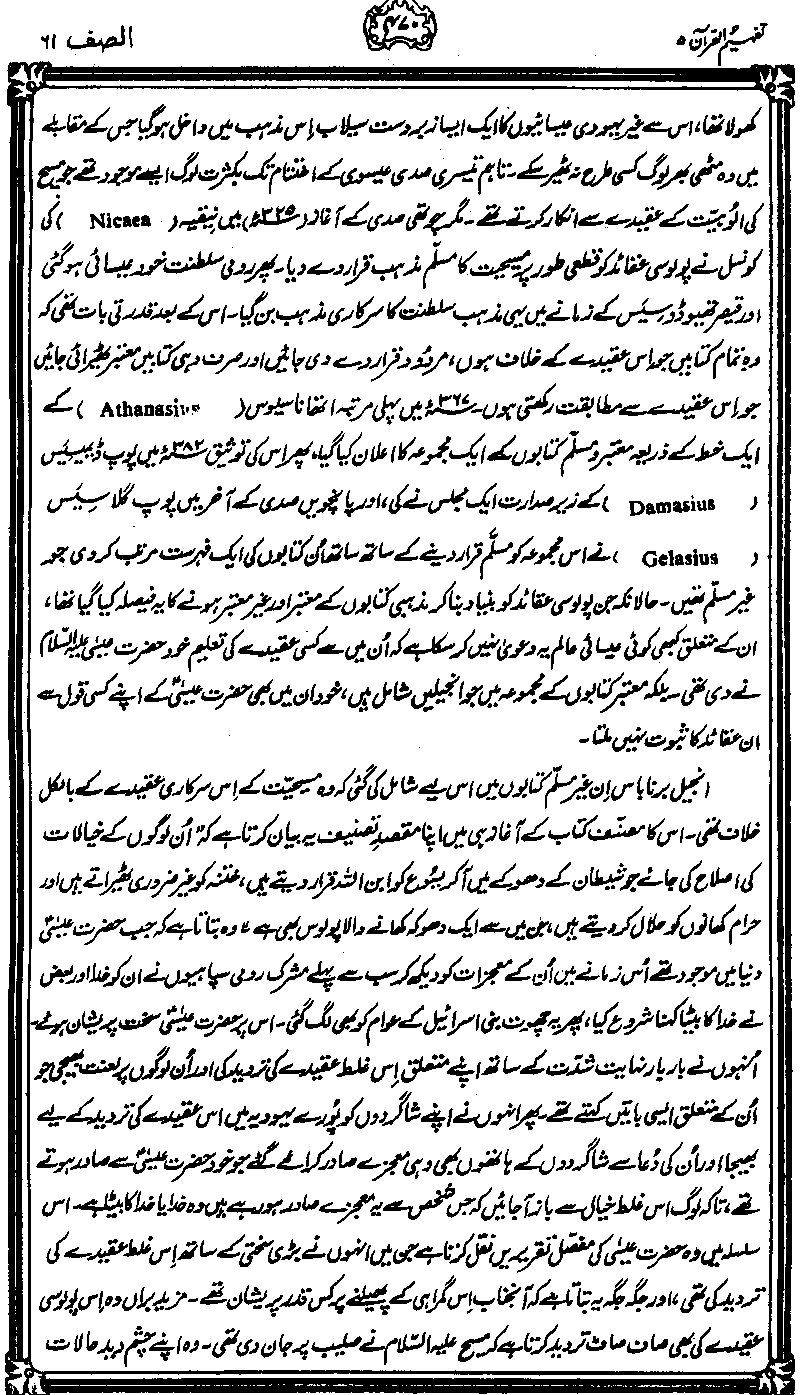 تفہیم القرآن ۵
۴۷۰
الصف ۶۱
کھولا تھا، اس سے غیر یہودی عیسائیوں کا ایک ایسا زبردست سیلاب اِس مذہب میں داخل ہو گیا جس کے مقابلے
میں وہ مٹھی بھر لوگ کسی طرح نہ ٹھیر سکے۔ تاہم تیسری صدی عیسوی کے اختتام تک بکثرت لوگ ایسے موجود تھے جو مسیح
کی الُوہیّت کے عقیدے سے انکار کرتے تھے۔ مگر چوتھی صدی کے آغاز (۳۲۵ء) میں نیقیہ (Nicaea) کی
کونسل نے پولوسی عقائد کو قطعی طور پر مسیحیت کا مسلّم مذہب قرار دے دیا۔ پھر رومی سلطنت خود عیسائی ہو گئی
اور قیصر تھیوڈوسیُس کے زمانے میں یہی مذہب سلطنت کا سرکاری مذہب بن گیا۔ اس کے بعد قدرتی بات تھی کہ
وہ تمام کتابیں جو اِس عقیدے کے خلاف ہوں، مردُود قرار دے دی جائیں اور صرف وہی کتابیں معتبر ٹھیرائی جائیں
جو اِس عقیدے سے مطابقت رکھتی ہوں۔ ۳۶۷ء میں پہلی مرتبہ اتھاناسیوس (Athanasius) کے
ایک خط کے ذریعہ معتبر و مسلّم کتابوں کے ایک مجموعہ کا اعلان کیا گیا، پھر اس کی توثیق ۳۸۲ء میں پوپ ڈیمیسیُس
(Damasius) کے زیر صدارت ایک مجلس نے کی، اور پانچویں صدی کے آخر میں پوپ گلاسیُس
(Gelasius) نے اس مجموعہ کو مسلّم قرار دینے کے ساتھ ساتھ اُن کتابوں کی ایک فہرست مرتب کر دی جو
غیر مسلّم تھیں۔ حالانکہ جن پولوسی عقائد کو بنیاد بنا کر مذہبی کتابوں کے معتبر اور غیر معتبر ہونے کا یہ فیصلہ کیا گیا تھا،
ان کے متعلق کبھی کوئی عیسائی عالم یہ دعویٰ نہیں کر سکا ہے کہ اُن میں سے کسی عقیدے کی تعلیم خود حضرت عیسٰی علیہ السّلام
نے دی تھی۔ بلکہ معتبر کتابوں کے مجموعہ میں جو انجیلیں شامل ہیں، خود ان میں بھی حضرت عیسیٰؑ کے اپنے کسی قول سے
ان عقائد کا ثبوت نہیں ملتا۔
انجیل برناباس اِن غیر مسلّم کتابوں میں اس لیے شامل کی گئی کہ وہ مسیحیّت کے اِس سرکاری عقیدے کے بالکل
خلاف تھی۔ اس کا مصنّف کتاب کے آغاز ہی میں اپنا مقصدِ تصنیف یہ بیان کرتا ہے کہ "اُن لوگوں کے خیالات
کی اصلاح کی جائے جو شیطان کے دھوکے میں آکر یسُوع کو ابن اللہ قرار دیتے ہیں، ختنہ کو غیر ضروری ٹھیراتے ہیں اور
حرام کھانوں کو حلال کر دیتے ہیں، جن میں سے ایک دھوکہ کھانے والا پولوس بھی ہے" وہ بتاتا ہے کہ جب حضرت عیسٰیؑ
دنیا میں موجود تھے اُس زمانے میں اُن کے معجزات کو دیکھ کر سب سے پہلے مشرک رومی سپاہیوں نے ان کو خدا اور بعض
نے خدا کا بیٹا کہنا شروع کیا، پھر یہ چھوت بنی اسرائیل کے عوام کو بھی لگ گئی۔ اس پر حضرت عیسٰیؑ سخت پریشان ہوئے۔
اُنہوں نے بار بار نہایت شدّت کے ساتھ اپنے متعلق اِس غلط عقیدے کی تردید کی اور اُن لوگوں پر لعنت بھیجی جو
اُن کے متعلق ایسی باتیں کہتے تھے۔ پھر انہوں نے اپنے شاگردوں کو پُورے یہودیہ میں اس عقیدے کی تردید کے لیے
بھیجا اور اُن کی دُعا سے شاگردوں کے ہاتھوں بھی وہی معجزے صادر کرائے گئے جو خود حضرت عیسٰیؑ سے صادر ہوتے
تھے، تاکہ لوگ اس غلط خیال سے باز آجائیں کہ جس شخص سے یہ معجزے صادر ہو رہے ہیں وہ خدا یا خدا کا بیٹا ہے۔ اس
سلسلہ میں وہ حضرت عیسٰیؑ کی مفصّل تقریریں نقل کرتا ہے جن میں انہوں نے بڑی سختی کے ساتھ اِس غلط عقیدے کی
تردید کی تھی، اور جگہ جگہ یہ بتاتا ہے کہ آنجناب اِس گمراہی کے پھیلنے پر کس قدر پریشان تھے۔ مزید براں وہ اِس پولوسی
عقیدے کی بھی صاف صاف تردید کرتا ہے کہ مسیح علیہ السّلام نے صلیب پر جان دی تھی۔ وہ اپنے چشم دید حالات